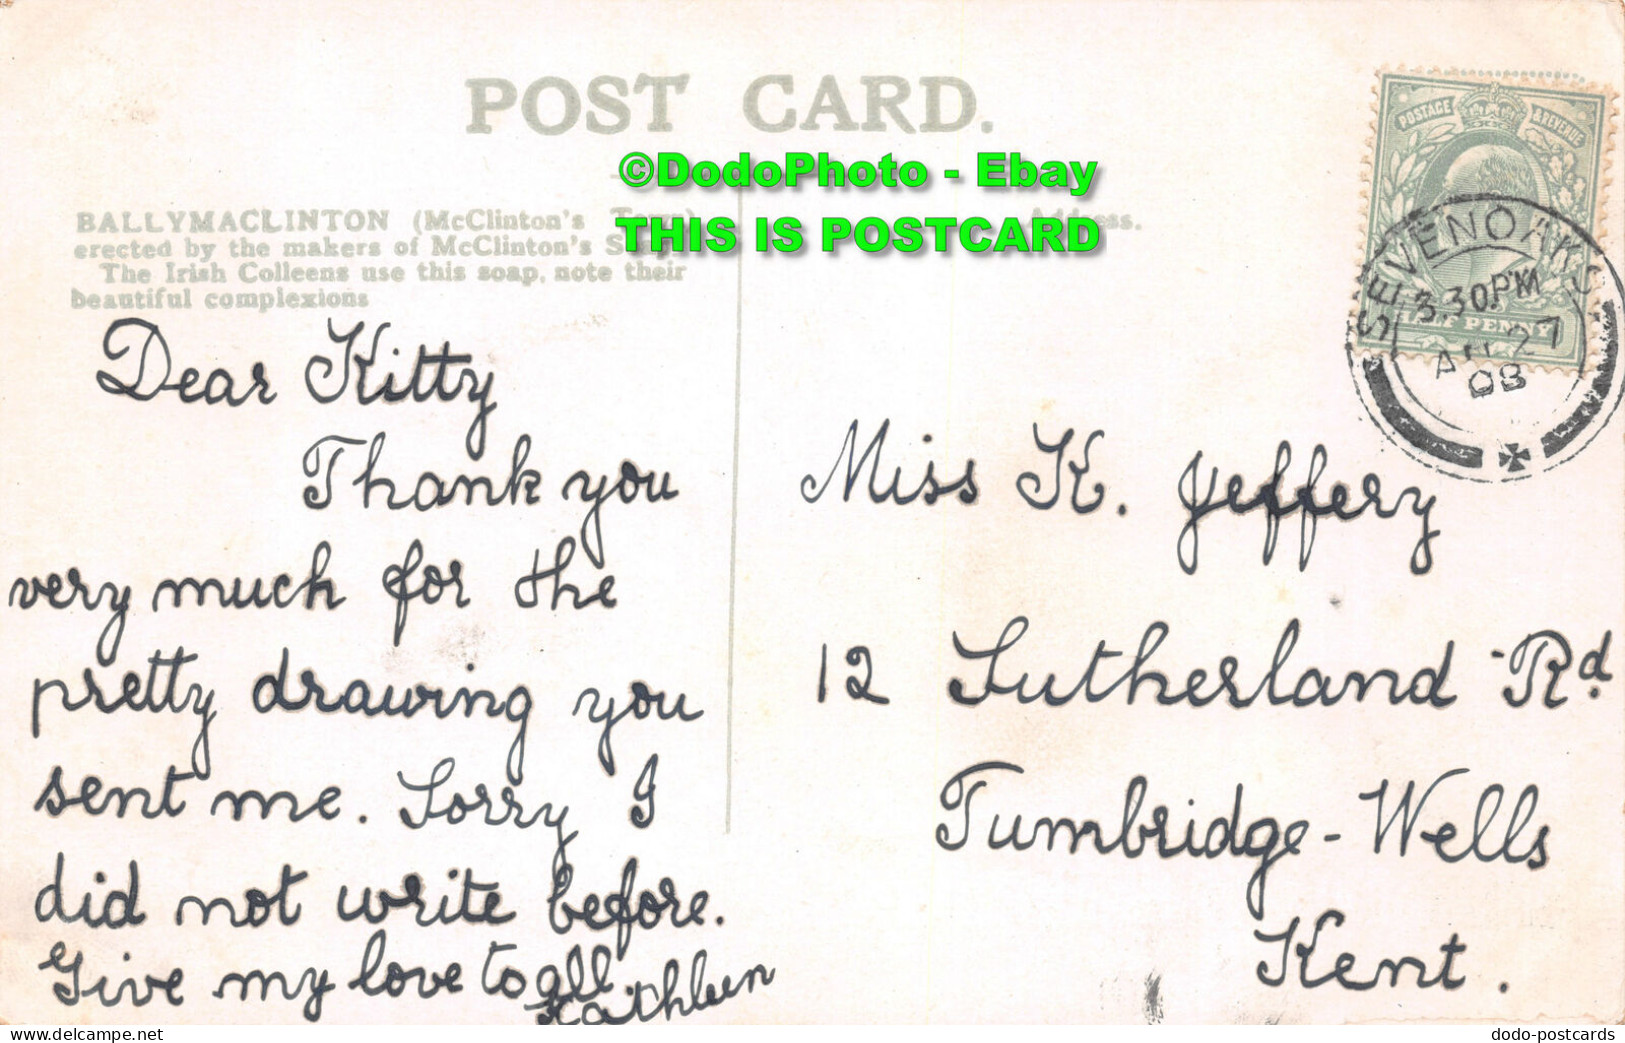 POST CARD.
©DodoPhoto - Ebay
THIS IS POSTCARD
BALLYMACLINTON (McClinton's Town)
erected by the makers of McClinton's
The Irish Colleens use this soap, note their
beautiful complexions
POSTAGE & REVENUE
HALF PENNY
SEVENOAKS
3.30PM
AU 27
08
Dear Kitty
Thank you
very much for the
pretty drawing you
sent me. Sorry I
did not write before.
Give my love to all.
Kathleen
Miss K. Jeffery
12 Sutherland Rd.
Tumbridge-Wells
Kent.
www.delcampe.net
dodo-postcards